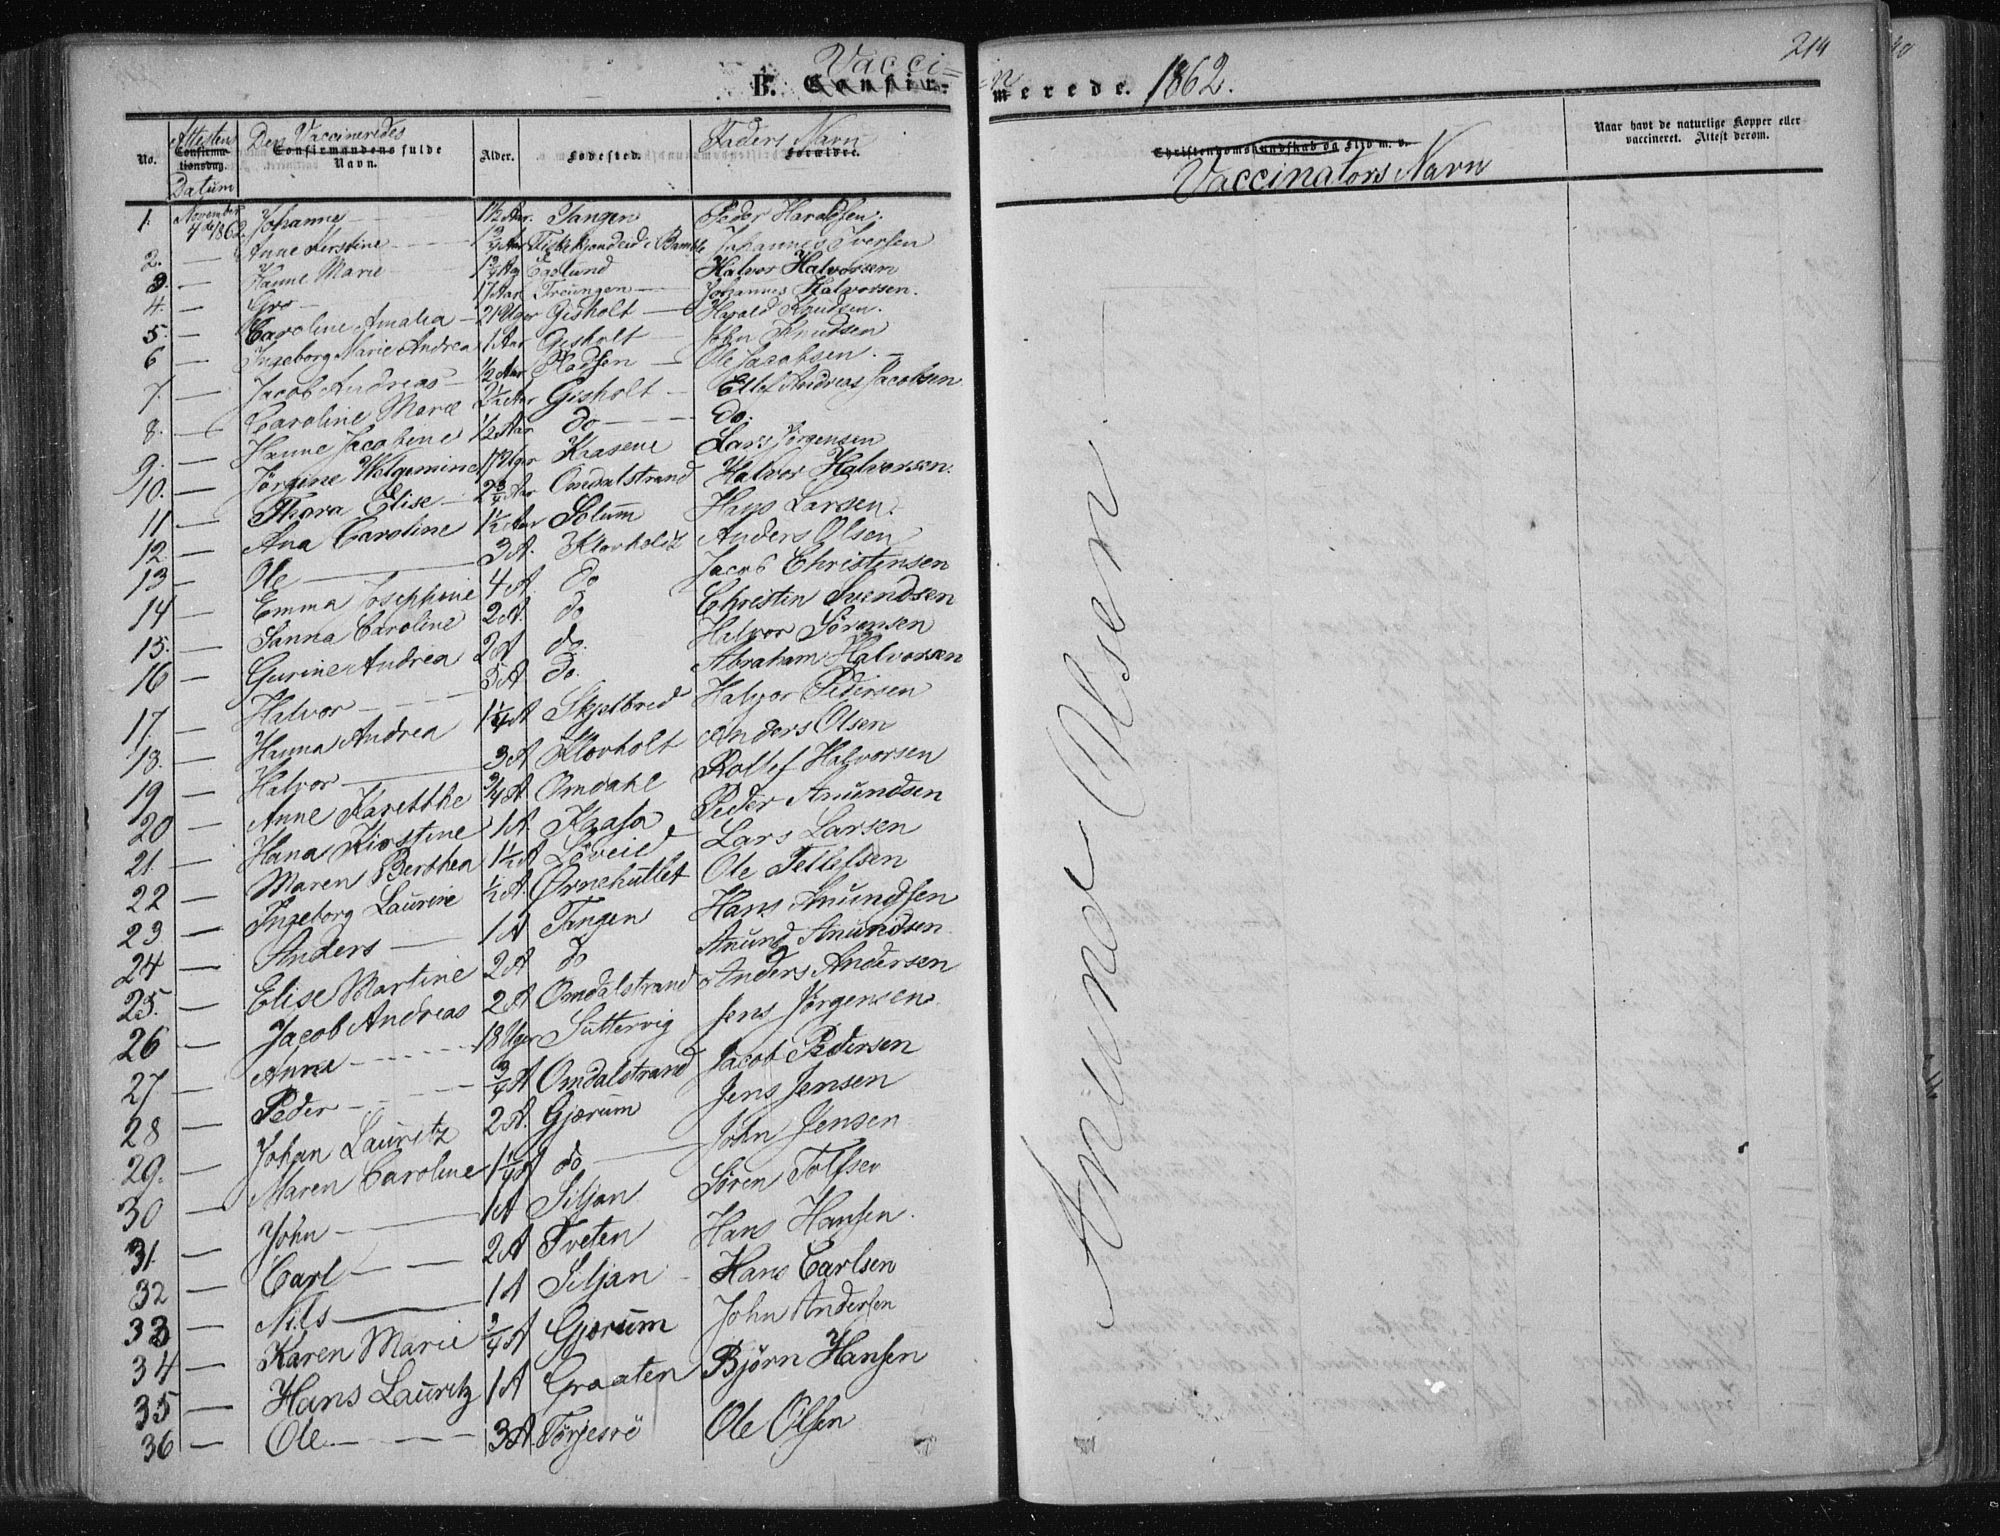 Vacci=
B. Confir-
=n
merede. 1862.
214
No.
Attestens
Confirma-
tionsdag.
Datum
Den Vaccineredes
Confirmandens fulde
Navn.
Alder.
Fødested.
Faders Navn
Forældre.
Christendomskundskab og Flid m. v.
Vaccinators Navn
Naar havt de naturlige Kopper eller
vaccineret. Attest derom.
1. November 4de 1862. Johanne 1½ Aar. Tangen Peder Haraldsen.
2. — Anne Kirstine 1¾ Aar i Bamble Johannes Iversen
3. — Hanne Marie 1¾ Aar Eeslund Halvor Halvorsen
4. — Gro — 17 Aar Treungen — Johannes Halvorsen.
5. — Caroline Amalia — 21 Uger Gisholt — Harald Knudsen.
6 — Ingeborg Marie Andrea 1 Aar Gisholt — John Knudsen
7. — Jacob Andreas — ½ Aar Pladsen — Ole Jacobsen. —
8. — Caroline Marie 2½ Aar Gisholt — Ellef Andreas Jacobsen
9. — Hanne Jacobine ½ Aar do — do.
10. — Jørgine Wilgemine 17 Uger Kaasene Lars Jørgensen
11 — Thora Elise — 2¾ Aar Omdalstrand Halvor Halvorsen.
12 — Ana Caroline 1½ Aar Solum Hans Larsen.
13 — Ole — 3 A. Klovholt Anders Olsen
14 — Emma Josephine 4 A. do Jacob Christensen
15. — Sanna Caroline 2 A. do Christen Svendsen
16 — Gurine Andrea 2 A do. Halvor Sørensen
17. — Halvor 5 A do. Abraham Halvorsen
18. — Hanna Andrea 1¼ A Skjelbred Halvor Pedersen
19 — Halvor — 3 A Klovholt Anders Olsen
20 — Anne Karethe ¾ A Omdahl Rollef Halvorsen
21. — Hana Kirstine 1 A. Kaasa Peder Amundsen
22 — Maren Berthea 1½ A Løveid Lars Larsen
23 — Ingeborg Laurine ½ A. Ørnehullet Ole Tellefsen
24 — Anders — 1 A Tangen Hans Amundsen
25. — Elise Martine 2 A do Amund Amundsen
26 — Jacob Andreas 2 A Omdalstrand Anders Andersen
27 — Anne 18 Uger Suttervig Jens Jørgensen.
28 — Peder ¾ A Omdalstrand Jacob Pedersen
29. — Johan Lauritz 2 A. Gjærum Jens Jensen
30 — Maren Caroline 1¼ A do — John Jensen
31. — John — 1 A Siljan Søren Tolfsen
32 — Carl — 2 A Tveten Hans Hansen.
33 — Nils — 1 A Siljan Hans Carlsen
34 — Karen Marie ¾ A Gjærum John Andersen
35 — Hans Lauritz 1 A Graaten Bjørn Hansen
36 — Ole 3 A. Torjesrø Ole Olsen
Amund Olsen